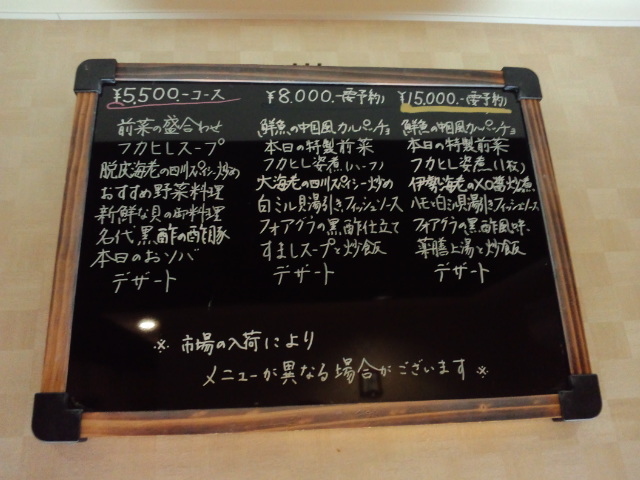 ¥5,500.-コース
前菜の盛合わせ
フカヒレスープ
脱皮海老の四川スパイシー炒め
おすすめ野菜料理
新鮮な貝の御料理
名代黒酢の酢豚
本日のおソバ
デザート
¥8,000.-要予約
鮮魚の中国風カルパッチョ
本日の特製前菜
フカヒレ姿煮(ハーフ)
大海老の四川スパイシー炒め
白ミル貝湯引きフィッシュソース
フォアグラの黒酢仕立て
すましスープと炒飯
デザート
¥15,000.-(要予約)
鮮魚の中国風カルパッチョ
本日の特製前菜
フカヒレ姿煮(1枚)
伊勢海老のXO醤炒煮
ハモと白ミル貝湯引きフィッシュソース
フォアグラの黒酢風味
薬膳上湯と炒飯
デザート
※ 市場の入荷により
メニューが異なる場合がございます※